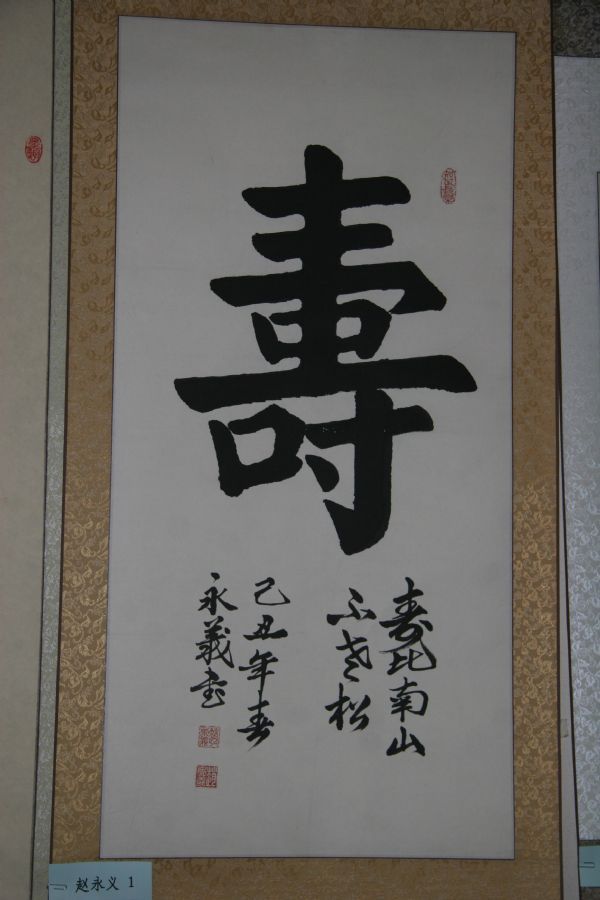 壽
寿比南山
不老松
己丑年春
永義书
赵永义 1